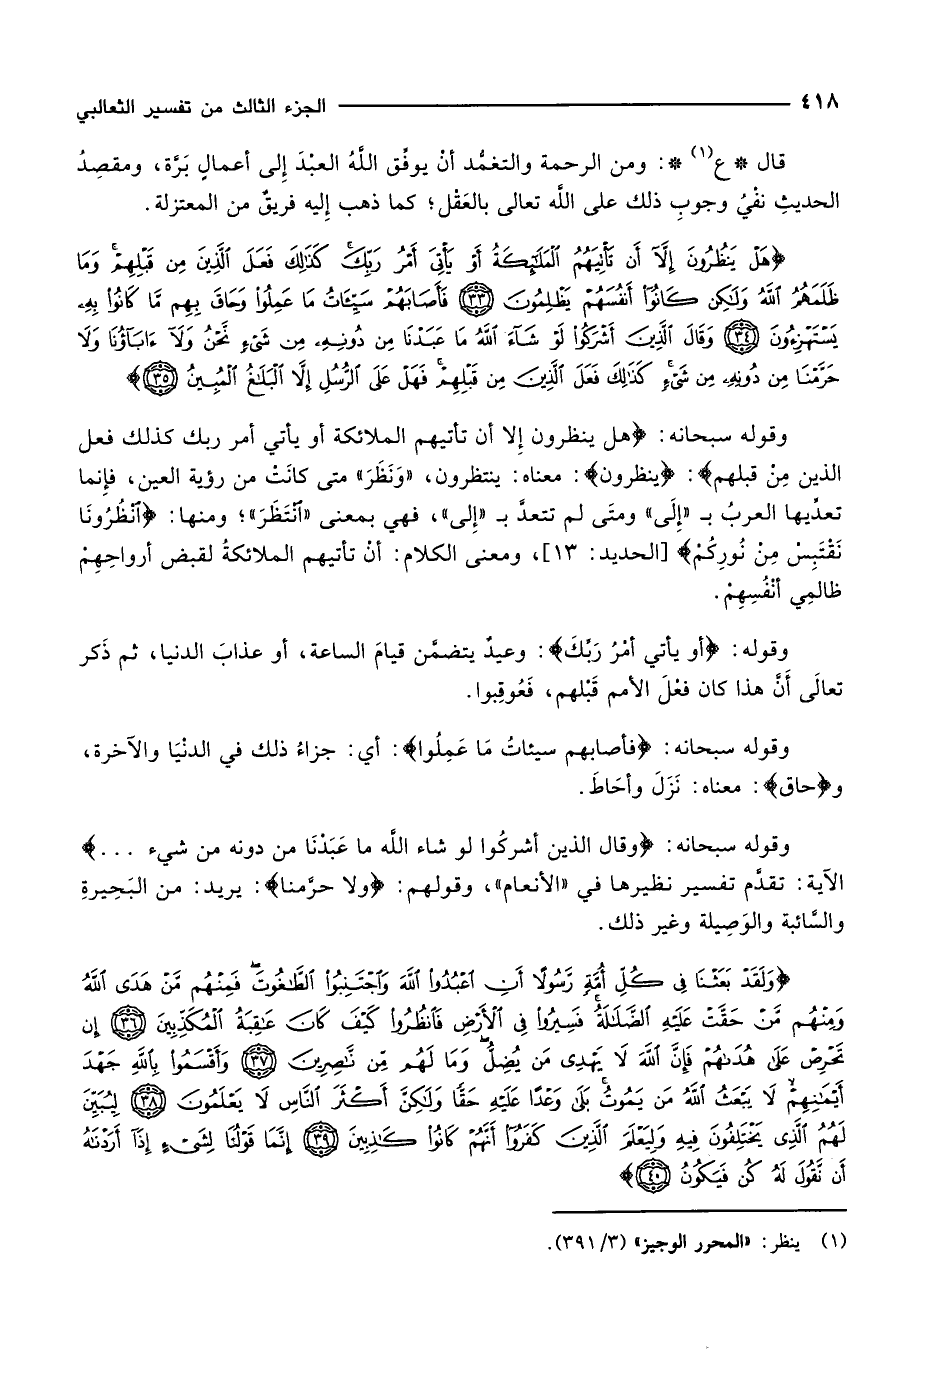 ٤١٨ الجزء الثالث من تفسير الثعالبي
قال * ع(١) *: ومن الرحمة والتغمُّد أنْ يوفِّق اللَّهُ العبْدَ إِلى أعمالٍ بَرَّة، ومقصِدُ
الحديثِ نفْيُ وجوبِ ذلك على اللَّه تعالى بالعَقْل؛ كما ذهب إليه فريقٌ من المعتزلة.
﴿هَلْ يَنظُرُونَ إِلَّآ أَن تَأْتِيَهُمُ ٱلْمَلَٰٓئِكَةُ أَوْ يَأْتِىَ أَمْرُ رَبِّكَ كَذَٰلِكَ فَعَلَ ٱلَّذِينَ مِن قَبْلِهِمْ وَمَا
ظَلَمَهُمُ ٱللَّهُ وَلَٰكِن كَانُوٓا۟ أَنفُسَهُمْ يَظْلِمُونَ ٣٣ فَأَصَابَهُمْ سَيِّئَاتُ مَا عَمِلُوا۟ وَحَاقَ بِهِم مَّا كَانُوا۟ بِهِۦ
يَسْتَهْزِءُونَ ٣٤ وَقَالَ ٱلَّذِينَ أَشْرَكُوا۟ لَوْ شَآءَ ٱللَّهُ مَا عَبَدْنَا مِن دُونِهِۦ مِن شَىْءٍ نَّحْنُ وَلَآ ءَابَآؤُنَا وَلَا
حَرَّمْنَا مِن دُونِهِۦ مِن شَىْءٍ كَذَٰلِكَ فَعَلَ ٱلَّذِينَ مِن قَبْلِهِمْ فَهَلْ عَلَى ٱلرُّسُلِ إِلَّا ٱلْبَلَٰغُ ٱلْمُبِينُ ٣٥﴾
وقوله سبحانه: ﴿هل ينظرون إلا أن تأتيهم الملائكة أو يأتي أمر ربك كذلك فعل
الذين مِنْ قبلهم﴾: ﴿ينظرون﴾: معناه: ينتظرون، «وَنَظَرَ» متى كانَتْ من رؤية العين، فإنما
تعدِّيها العربُ بـ «إِلَى» ومتَى لم تتعدَّ بـ «إلى»، فهي بمعنى «ٱنْتَظَرَ»؛ ومنها: ﴿ٱنْظُرُونَا
نَقْتَبِسْ مِنْ نُورِكُمْ﴾ [الحديد: ١٣]، ومعنى الكلام: أنْ تأتيهم الملائكةُ لقبض أرواحِهِمْ
ظالمِي أنْفُسِهِمْ.
وقوله: ﴿أو يأتي أمْرُ رَبِّكَ﴾: وعيدٌ يتضمَّن قيامَ الساعة، أو عذابَ الدنيا، ثم ذَكر
تعالَى أَنَّ هذا كان فعْلَ الأمم قَبْلهم، فَعُوقِبوا.
وقوله سبحانه: ﴿فأصابهم سيئاتُ مَا عَمِلُوا﴾: أي: جزاءُ ذلك في الدنْيَا والآخرة،
و﴿حاق﴾: معناه: نَزَلَ وأحَاطَ.
وقوله سبحانه: ﴿وقال الذين أشركُوا لو شاء الله ما عَبَدْنَا من دونه من شيء ...﴾
الآية: تقدَّم تفسير نظيرها في «الأنعام»، وقولهم: ﴿ولا حرَّمنا﴾: يريد: من البَحِيرةِ
والسَّائبة والوَصِيلة وغير ذلك.
﴿وَلَقَدْ بَعَثْنَا فِى كُلِّ أُمَّةٍ رَّسُولًا أَنِ ٱعْبُدُوا۟ ٱللَّهَ وَٱجْتَنِبُوا۟ ٱلطَّٰغُوتَ فَمِنْهُم مَّنْ هَدَى ٱللَّهُ
وَمِنْهُم مَّنْ حَقَّتْ عَلَيْهِ ٱلضَّلَٰلَةُ فَسِيرُوا۟ فِى ٱلْأَرْضِ فَٱنظُرُوا۟ كَيْفَ كَانَ عَٰقِبَةُ ٱلْمُكَذِّبِينَ ٣٦ إِن
تَحْرِصْ عَلَىٰ هُدَىٰهُمْ فَإِنَّ ٱللَّهَ لَا يَهْدِى مَن يُضِلُّ وَمَا لَهُم مِّن نَّٰصِرِينَ ٣٧ وَأَقْسَمُوا۟ بِٱللَّهِ جَهْدَ
أَيْمَٰنِهِمْ لَا يَبْعَثُ ٱللَّهُ مَن يَمُوتُ بَلَىٰ وَعْدًا عَلَيْهِ حَقًّا وَلَٰكِنَّ أَكْثَرَ ٱلنَّاسِ لَا يَعْلَمُونَ ٣٨ لِيُبَيِّنَ
لَهُمُ ٱلَّذِى يَخْتَلِفُونَ فِيهِ وَلِيَعْلَمَ ٱلَّذِينَ كَفَرُوٓا۟ أَنَّهُمْ كَانُوا۟ كَٰذِبِينَ ٣٩ إِنَّمَا قَوْلُنَا لِشَىْءٍ إِذَآ أَرَدْنَٰهُ
أَن نَّقُولَ لَهُۥ كُن فَيَكُونُ ٤٠﴾
(١) ينظر: «المحرر الوجيز» (٣/ ٣٩١).